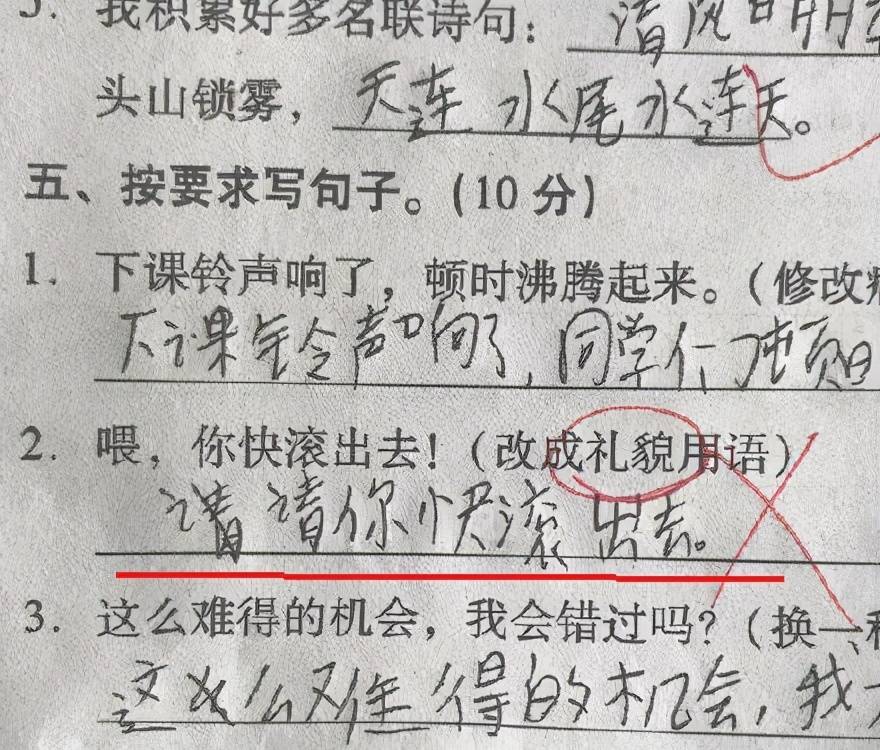 5. 我积累好多名联诗句：清风明
头山锁雾，天连水尾水连天。
五、按要求写句子。(10 分)
1. 下课铃声响了，顿时沸腾起来。(修改
下课铃声响了，同学们顿
2. 喂，你快滚出去！(改成礼貌用语)
请请你快滚出去。
3. 这么难得的机会，我会错过吗？(换一种
这么难得的机会，我